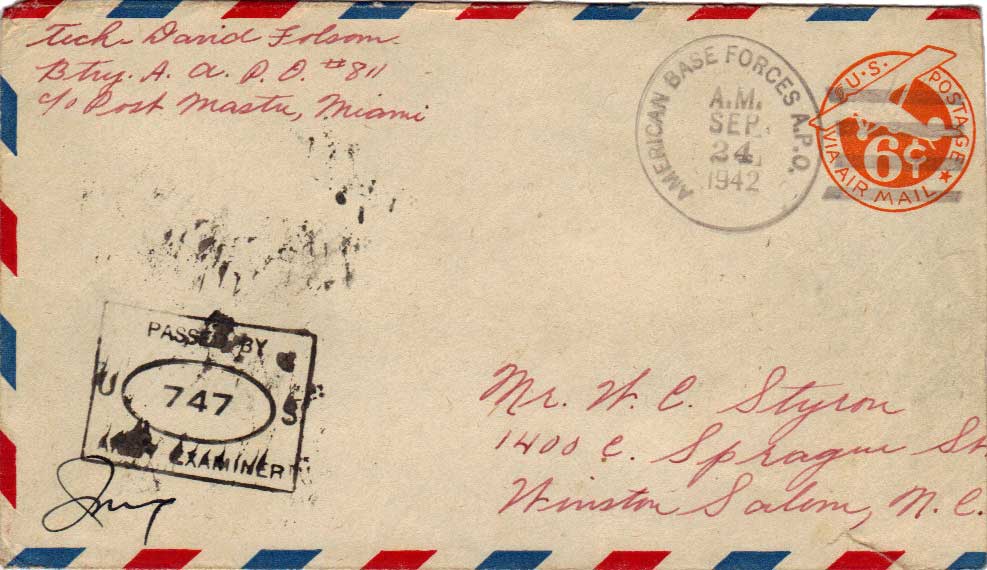 Tech. David Folsom
Btry. A. A. P. O. #811
c/o Post Master, Miami
AMERICAN BASE FORCES A.P.O.
A.M.
SEP
24
1942
U.S. POSTAGE
6¢
VIA AIR MAIL
PASSED BY
U 747 S
ARMY EXAMINER
Mr. W. C. Styron
1400 E. Sprague St
Winston Salem, N. C.